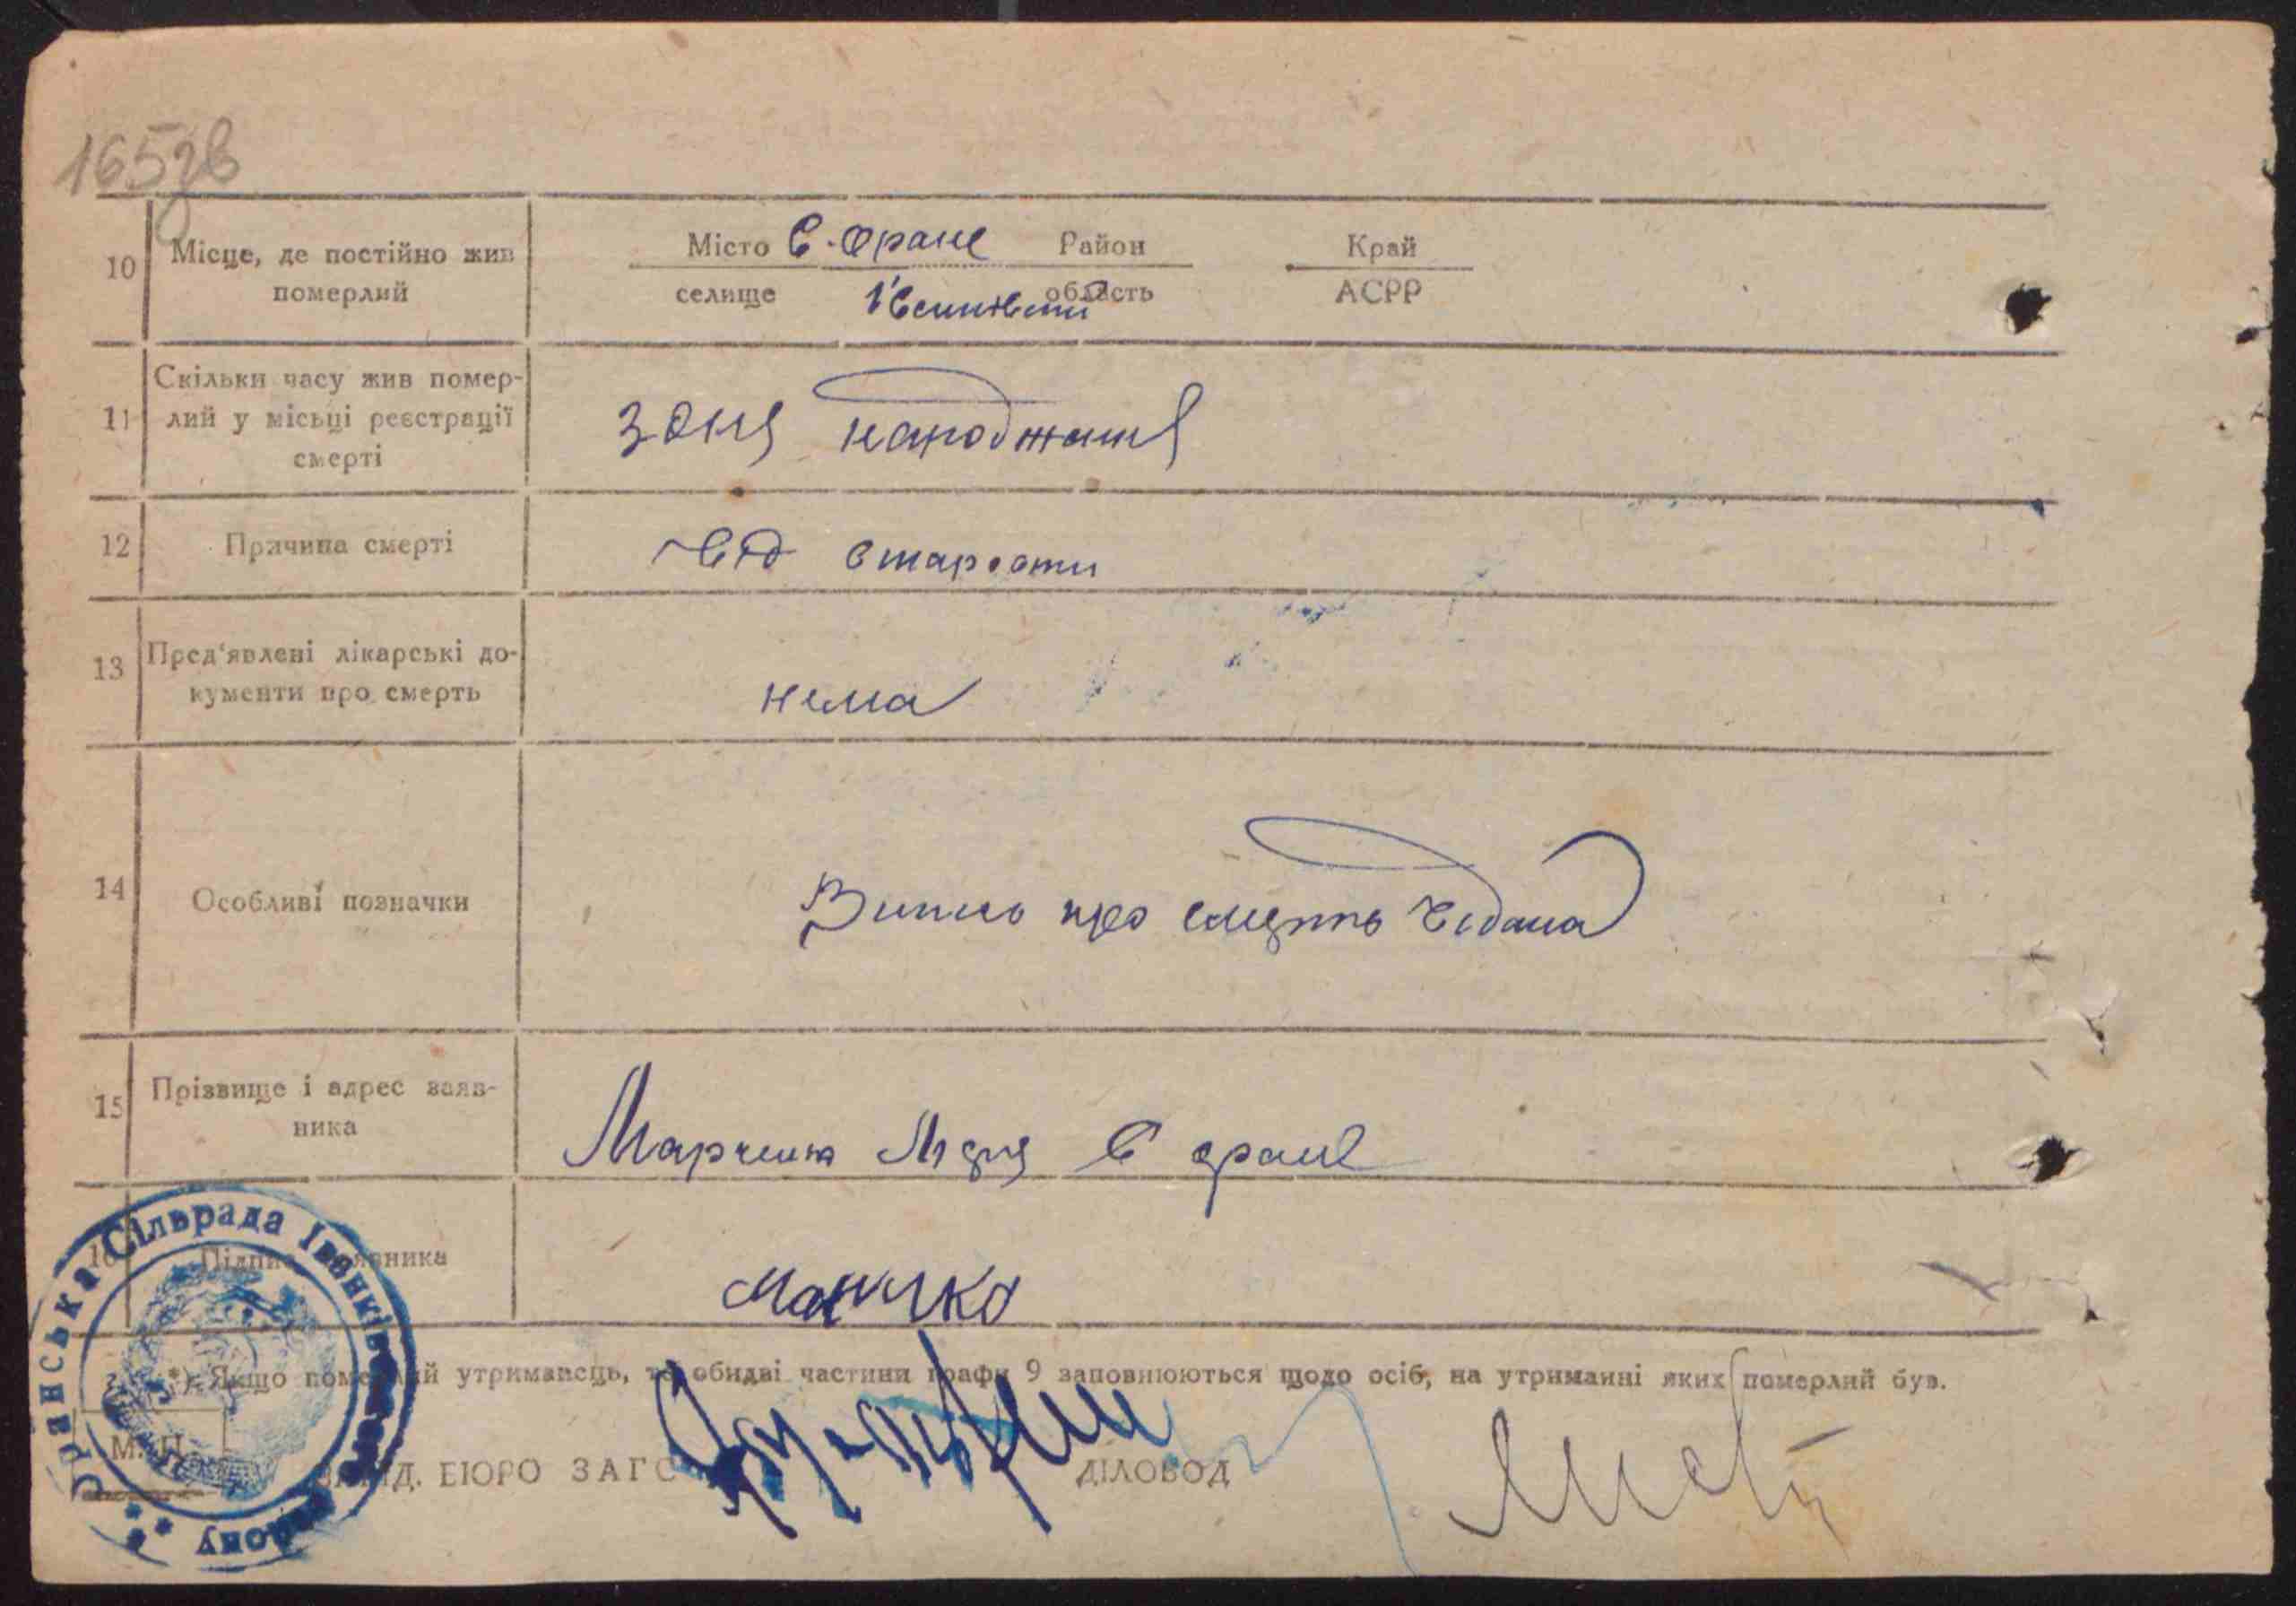 165зв
10 Місце, де постійно жив
померлий
Місто С. Оране Район
селище область
Край
АСРР
11 Скільки часу жив помер-
лий у місьці реєстрації
смерті
З дня народження
12 Причина смерті
від старости
13 Пред'явлені лікарські до-
кументи про смерть
нема
14 Особливі позначки
Випись про смерть видана
15 Прізвище і адрес заяв-
ника
Марченко С Оране
16 Підпис заявника
*) Якщо померлий утриманець, то обидві частини графи 9 заповнюються щодо осіб, на утриманні яких померлий був.
М. П.
ЗАВІД. БЮРО ЗАГС
ДІЛОВОД
Оранська Сільрада Іванківського району